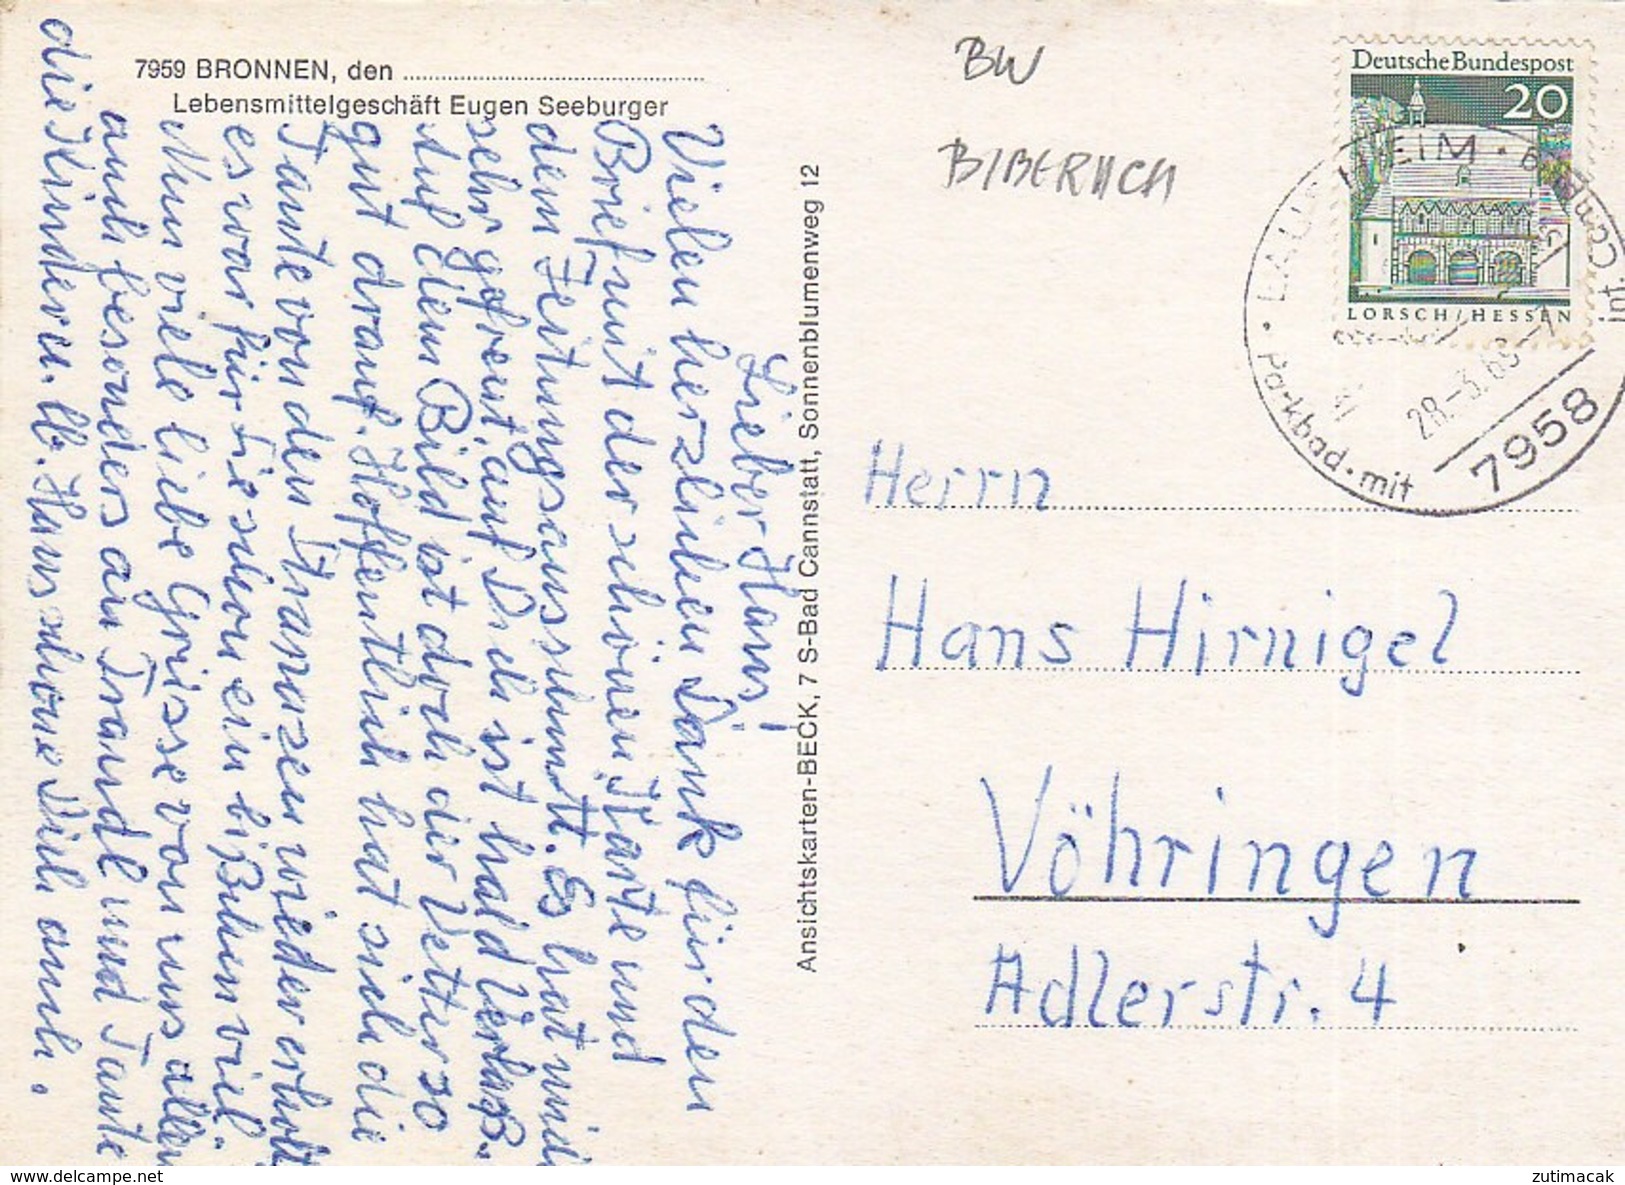 7959 BRONNEN, den
Lebensmittelgeschäft Eugen Seeburger
Lieber Hans!
Vielen herzlichen Dank für den
Brief mit der schönen Karte und
dem Zeitungsausschnitt. Es hat mich
sehr gefreut, auf Dich ist hald Verlaß.
Auf dem Bild ist doch der Vetter so
gut drauf. Hoffentlich hat sich die
Tante von den Strapazen wieder erholt
es war für Sie schon ein bißchen viel.
Nun viele liebe Grüsse von uns allen
auch besonders an Traudl und Tante
die Kinder u. lb. Hans schone Dich auch.
Ansichtskarten-BECK, 7 S-Bad Cannstatt, Sonnenblumenweg 12
BW
BIBERACH
Deutsche Bundespost
20
LORSCH/HESSEN
LAUPHEIM
Parkbad · mit
int. Camp
28.-3.69
7958
Herrn
Hans Hirnigel
Vöhringen
Adlerstr. 4
delcampe.net
zutimacak